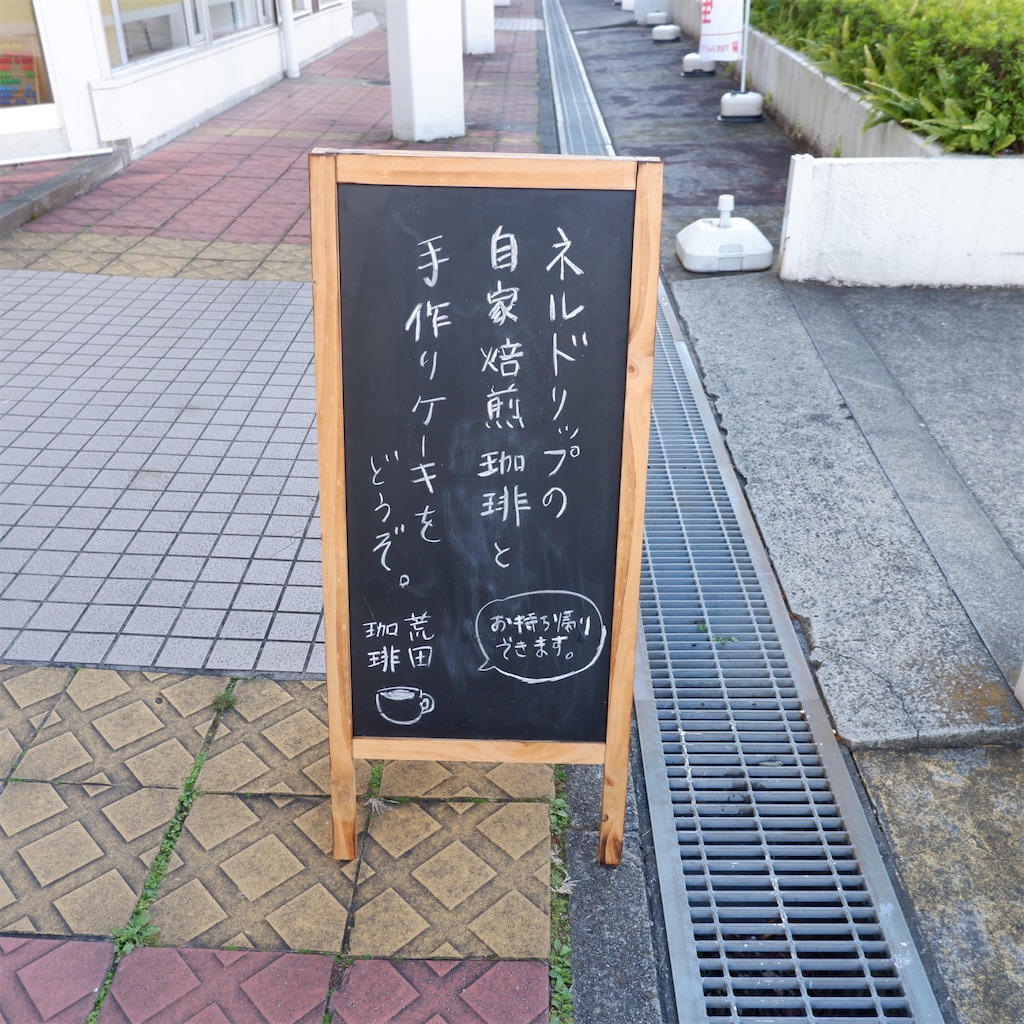 ネルドリップの
自家焙煎珈琲と
手作りケーキを
どうぞ。
お持ち帰り
できます。
荒田
珈琲